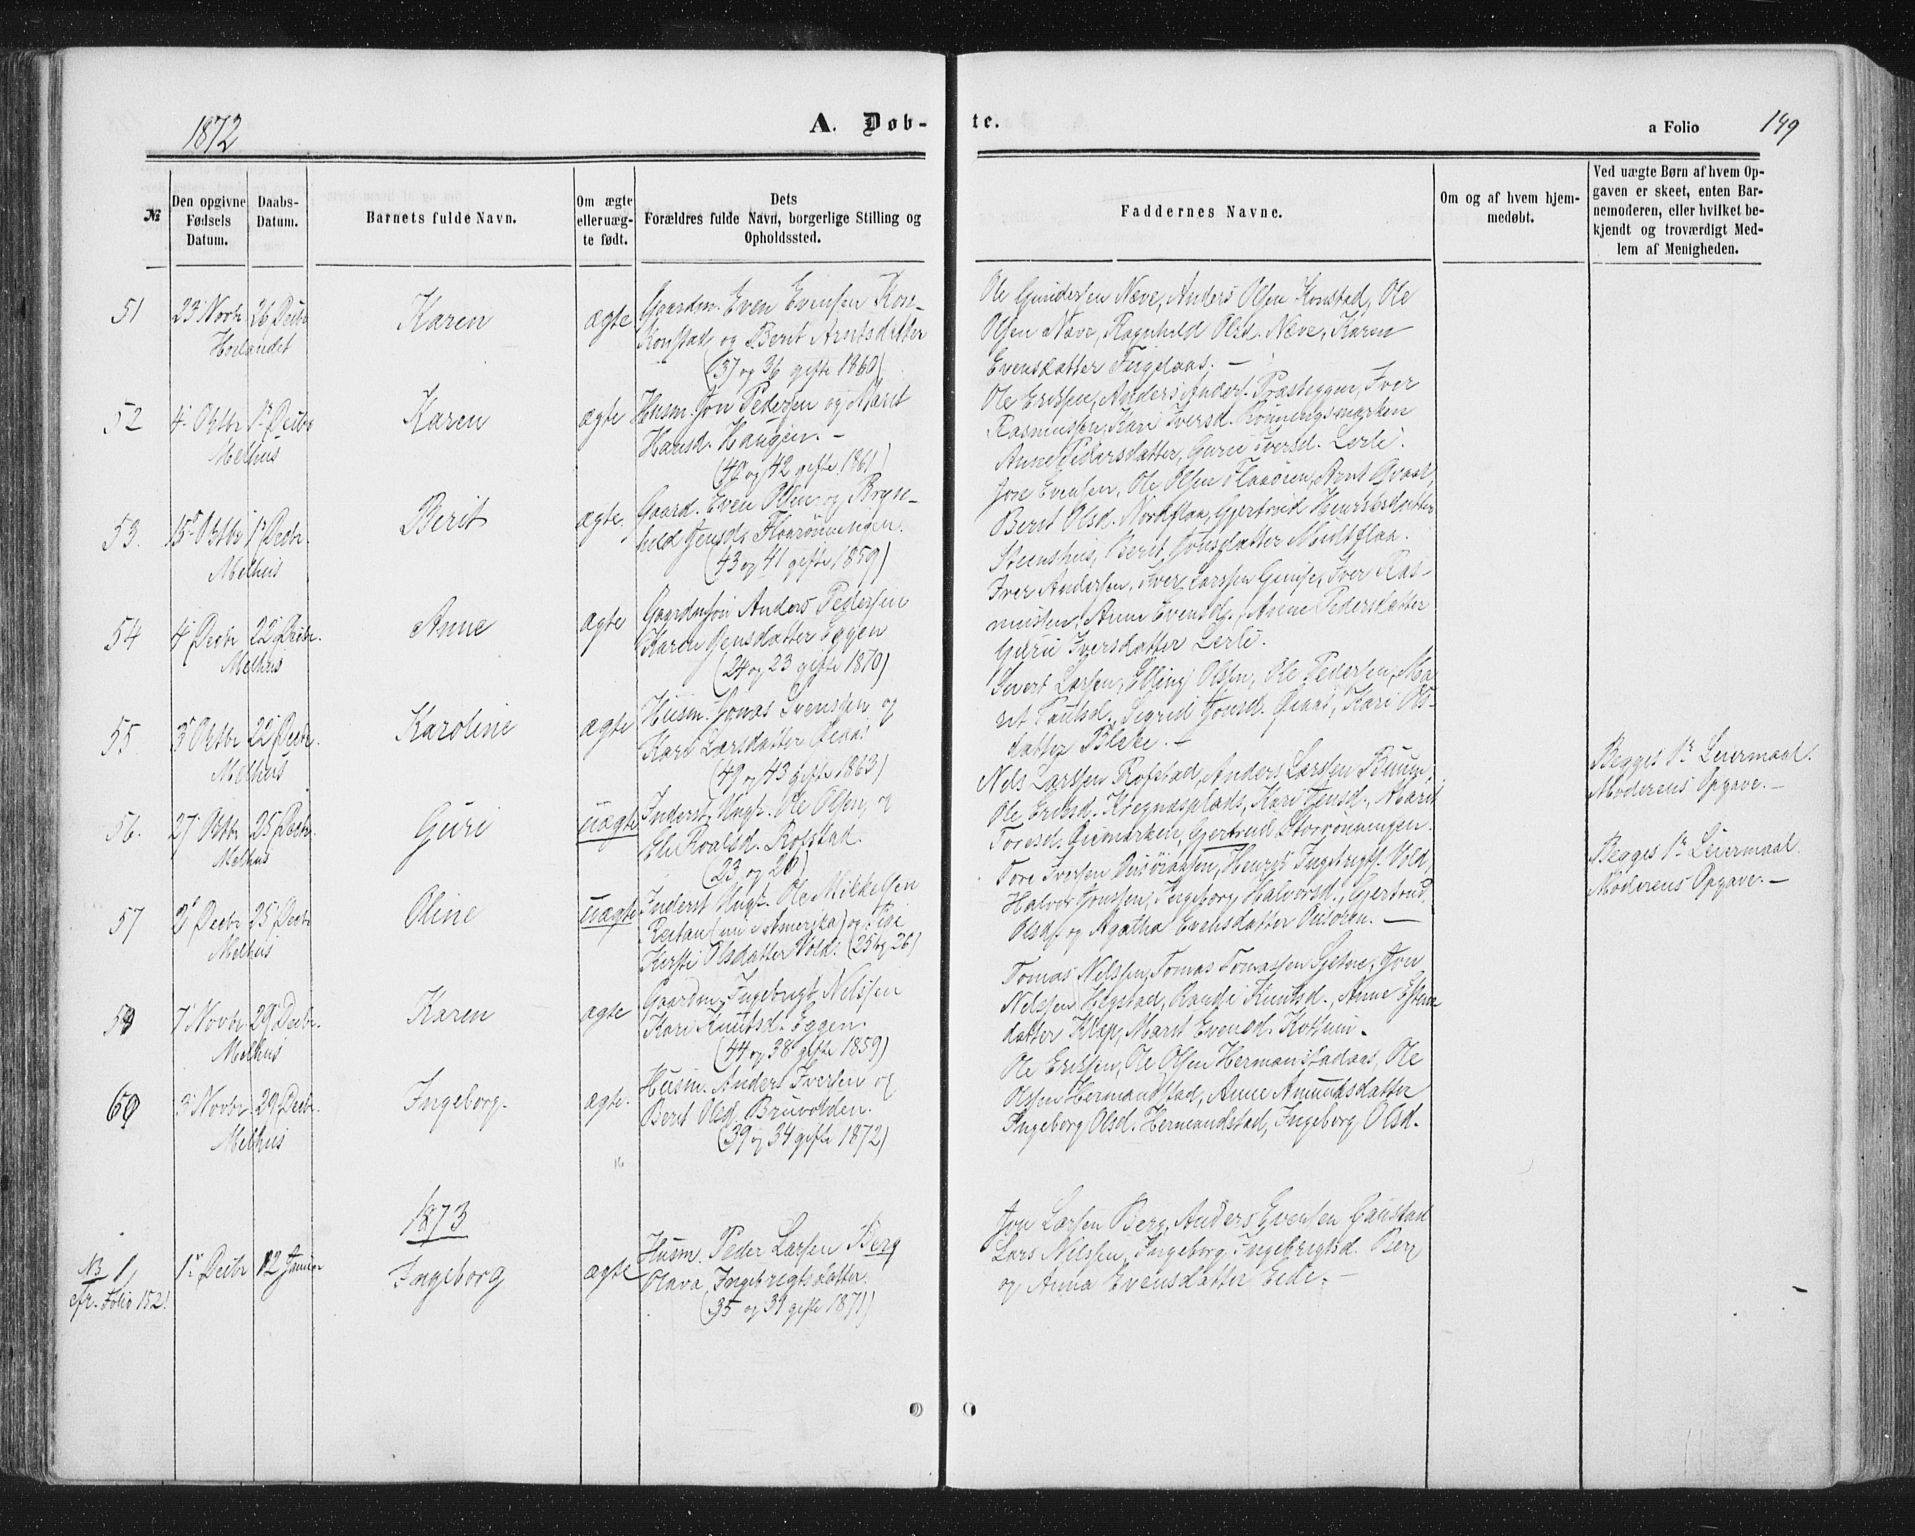 1872
A. Døb-
te.
a Folio
149
№
Den opgivne
Fødsels
Datum.
Daabs-
Datum.
Barnets fulde Navn.
Om ægte
eller uæg-
te født.
Dets
Forældres fulde Navn, borgerlige Stilling og
Opholdssted.
Faddernes Navne.
Om og af hvem hjem-
medøbt.
Ved uægte Børn af hvem Op-
gaven er skeet, enten Bar-
nemoderen, eller hvilket be-
kjendt og troværdigt Med-
lem af Menigheden.
51
23 Novbr
26 Decbr
Karen
ægte
Gaardm. Even Evensen
Konstad og Berit Arntsdatter
(37 og 36 gifte 1860)
Ole Gundersen Næve, Anders Olsen Konstad, Ole
Olsen Næve, Ragnhild Olsd. Næve, Karen
Evensdatter
52
4 Octbr
1 Decbr
Melhus
Karen
ægte
Husm. Jon Pedersen og Marit
Hansd. Haugen. –
(42 gifte 1861)
Ole Eriksen, Anders Anders. Iver
Rasmussen, Kari Iversd. Rønningsmarken
Anne Pedersdatter, Guru Iversd. Lerli.
53.
15 Octbr
1 Decbr.
Melhus
Berit
ægte,
Gaard. Even Olsen og Bryn-
hild Jensd. Flaarønningen.
(43 og 41 gifte 1859)
Jon Evensen, Ole Olsen Flaaøien, Arnt Qvaal,
Berit Olsd. Nordflaa, Henriksdatter
Steenshus, Berit Jonsdatter Midtflaa.
54
4 Decbr
22 Decbr.
Melhus
Anne
ægte
Anders Pedersen
Karen Jensdatter Eggen
(24 og 23 gifte 1870)
Iver Andersen, Iver Larssen Iver Ras-
mussen, Anne Evensd., Anne Pedersdatter
Guru Iversdatter Lerli.
55.
3 Octbr
22 Decbr.
Melhus
Karoline
ægte
Husm. Jonas Svensen og
Kari Larsdatter Øiaas
(49 og 43 gifte 1863)
Sivert Larsen, Olsen, Ole Pedersen, Ma-
rit Paulsd., Sigrid Jonsd. Øiaas, Kari Ols-
datter
56.
27 Octbr
25 Decbr.
Melhus
Guri
uægte
Inderst Ungk. Ole Olsen og
Eli Roalsd. Rofstad.
(23 og 20)
Nels Larssen Rofstad, Anders Larssen
Ole Kari Jensd., Marit
Toresd. Gjertrud Storrønningen.
Begges 1ste Leiermaal.
Moderens Opgave. –
57
2 Decbr
25 Decbr
Melhus
Oline
uægte
Inderst Ungk. Ole Mikkelsen
(nu i Amerika) og Pige
Kirsti Olsdatter Vold. (25 og 26)
Tore Iversen Henrik Ingebrigts. Vold,
Halvor Jonssen, Ingeborg Halvorsd., Gjertrud
Olsd. og Agatha Evensdatter –
Begges 1ste Leiermaal
Moderens Opgave. –
59
7 Novbr
29 Decbr.
Melhus
Karen
ægte
Gaardm. Ingebrigt Nelssen
Kari Knutsd. Eggen.
(44 og 38 gifte 1859)
Tomas Nelssen, Tomas Tomassen Jon
Nelssen Hegstad, Randi Knutsd., Anne Estens
datter Marit Evensd. Kottum.
60
3 Novbr
29 Decbr.
Melhus
Ingeborg.
ægte.
Husm. Anders Iversen og
Berit Olsd. Bruvolden.
(39 og 34 gifte 1872)
Ole Eriksen, Ole Olsen Hermanstadaas, Ole
Olssen Hermandstad, Anne Amundsdatter
Ingeborg Olsd. Hermandstad, Ingeborg Olsd.
1873
№ 1,
cfr. Folio 152!
1 Decbr
12 Januar
Ingeborg
ægte
Husm. Peder Larsen Berg
Olava Ingebrigtsdatter.
(35 og 31 gifte 1871)
Jon Larsen Berg, Anders Evensen
Lars Nelssen, Ingeborg Ingebrigtsd. Berg
og Anna Evensdatter Eide. –